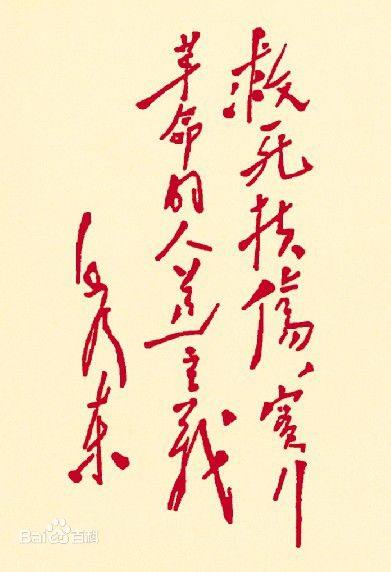 救死扶傷、實行
革命的人道主義
毛澤东
Baidu百科